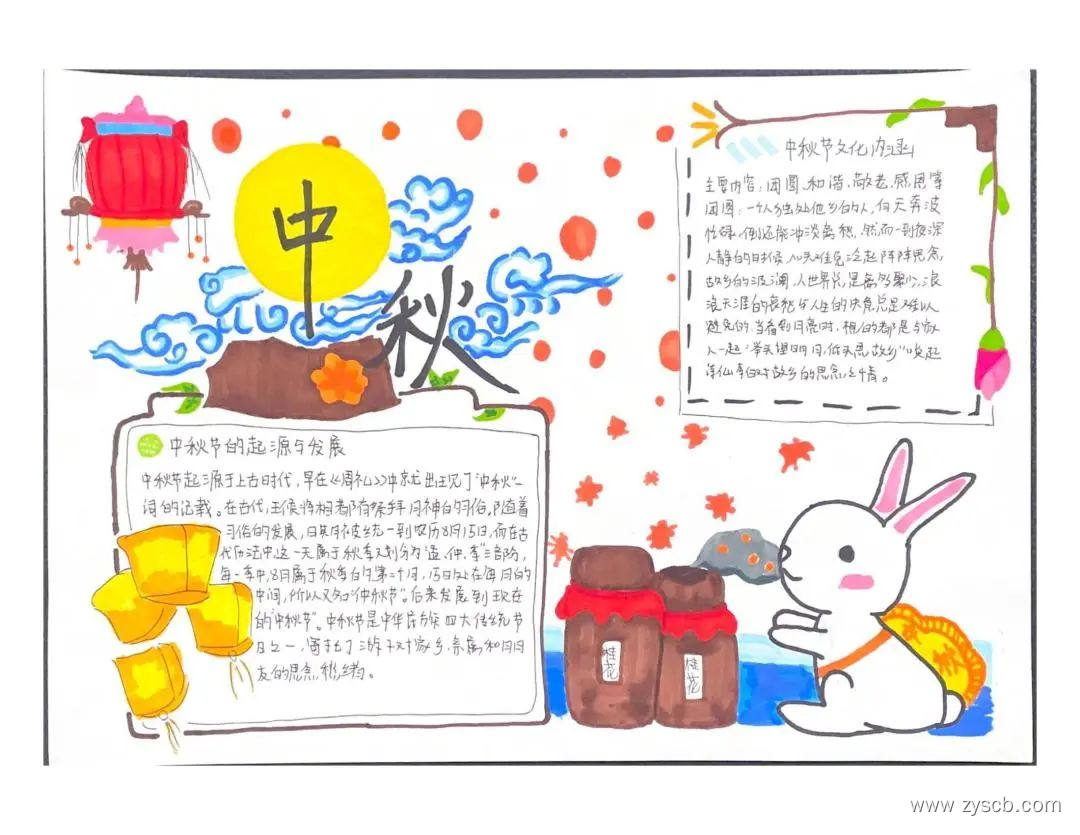 中
秋
中秋节的起源与发展
中秋节起源于上古时代，早在《周礼》中就出现了“中秋”一
词的记载。在古代，王侯将相都有祭拜月神的习俗，随着
习俗的发展，日期被统一到农历8月15日，而在古
代历法中这一天属于秋季又划分为“孟、仲、季”三部分，
每一季中，8月属于秋季的第二个月，15日处在每月的
中间，所以又如“仲秋节”。后来发展到现在
的“中秋节”。中秋节是中华民族四大传统节
日之一，寄托了游子对家乡、亲属和朋
友的思念、
中秋节文化内涵
主要内容：团圆、和谐、敬老、感恩等
团圆：一个人独处他乡的人，白天奔波
忙碌，倒还能冲淡离愁，然而一到夜深
人静的时候，心头难免泛起阵阵思念
故乡的波澜，人世界总是离多聚少，浪
浪天涯的哀愁与人生的失意总是难以
避免的，当看到月亮时，想的都是与家人
人一起“举头望明月，低头思故乡”唤起
诗仙李白对故乡的思念之情。
桂花
桂花
www.zyscb.com